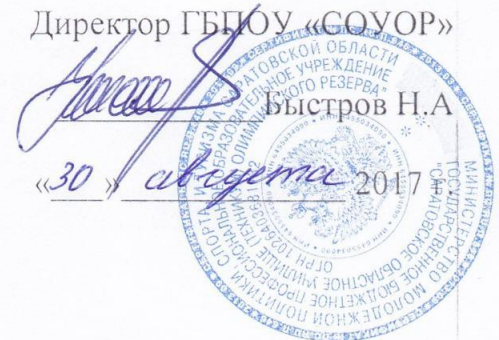 Директор ГБПОУ «СОУОР»
Быстров Н.А
«30» августа 2017 г.
МИНИСТЕРСТВО МОЛОДЕЖНОЙ ПОЛИТИКИ СПОРТА
САРАТОВСКОЙ ОБЛАСТИ
ГОСУДАРСТВЕННОЕ БЮДЖЕТНОЕ ПРОФЕССИОНАЛЬНОЕ ОБРАЗОВАТЕЛЬНОЕ УЧРЕЖДЕНИЕ
"САРАТОВСКОЕ ОБЛАСТНОЕ УЧИЛИЩЕ ОЛИМПИЙСКОГО РЕЗЕРВА"
ОГРН